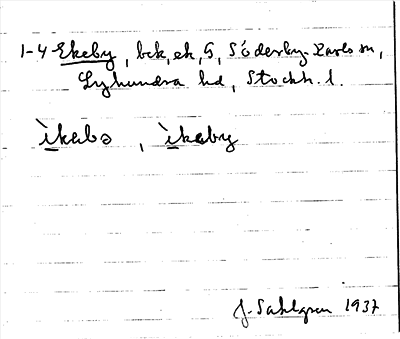 1-4 Ekeby, bck, ek, G, Söderby-Karls sn,
Lyhundra hd, Stockh. l.
ìkabə, ìkaby
J. Sahlgren 1937